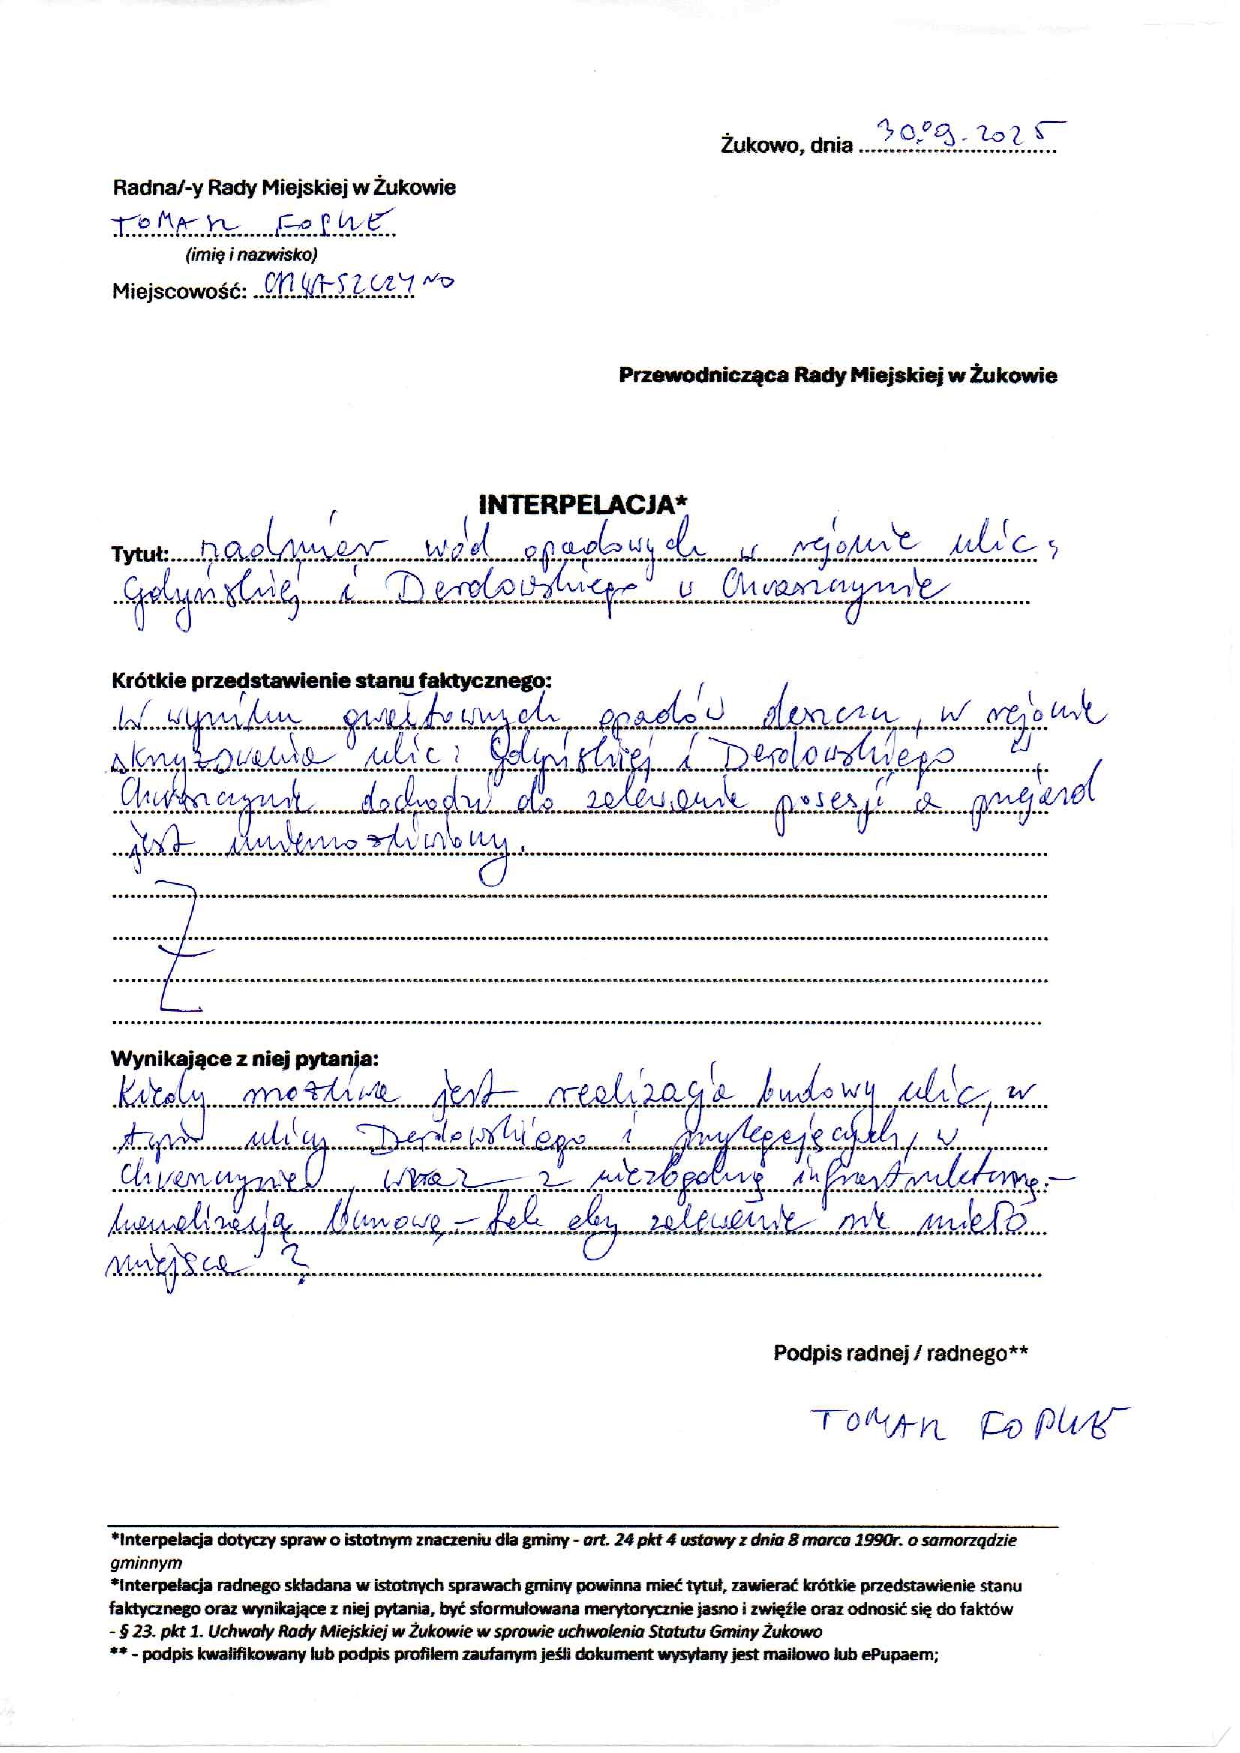 Żukowo, dnia 30.09.2025
Radna/-y Rady Miejskiej w Żukowie
TOMAN FOPKE
(imię i nazwisko)
Miejscowość: CHWASZCZYNO
Przewodnicząca Rady Miejskiej w Żukowie
INTERPELACJA*
Tytuł: nadmiar wód opadowych w rejonie ulic:
Gdyńskiej i Derdowskiego w Chwaszczynie
Krótkie przedstawienie stanu faktycznego:
W wyniku gwałtownych opadów deszczu, w rejonie
skrzyżowania ulic: Gdyńskiej i Derdowskiego w
Chwaszczynie dochodzi do zalewania posesji a przejazd
jest uniemożliwiony.
Z
Wynikające z niej pytania:
Kiedy możliwa jest realizacja budowy ulic, w
tym ulicy Derdowskiego i przylegających, w
Chwaszczynie, wraz z niezbędną infrastrukturą -
kanalizacją burzową - tak aby zalewanie nie miało
miejsca?
Podpis radnej / radnego**
TOMAN FOPKE
*Interpelacja dotyczy spraw o istotnym znaczeniu dla gminy - art. 24 pkt 4 ustawy z dnia 8 marca 1990r. o samorządzie
gminnym
*Interpelacja radnego składana w istotnych sprawach gminy powinna mieć tytuł, zawierać krótkie przedstawienie stanu
faktycznego oraz wynikające z niej pytania, być sformułowana merytorycznie jasno i zwięźle oraz odnosić się do faktów
- § 23. pkt 1. Uchwały Rady Miejskiej w Żukowie w sprawie uchwalenia Statutu Gminy Żukowo
** - podpis kwalifikowany lub podpis profilem zaufanym jeśli dokument wysyłany jest mailowo lub ePupaem;